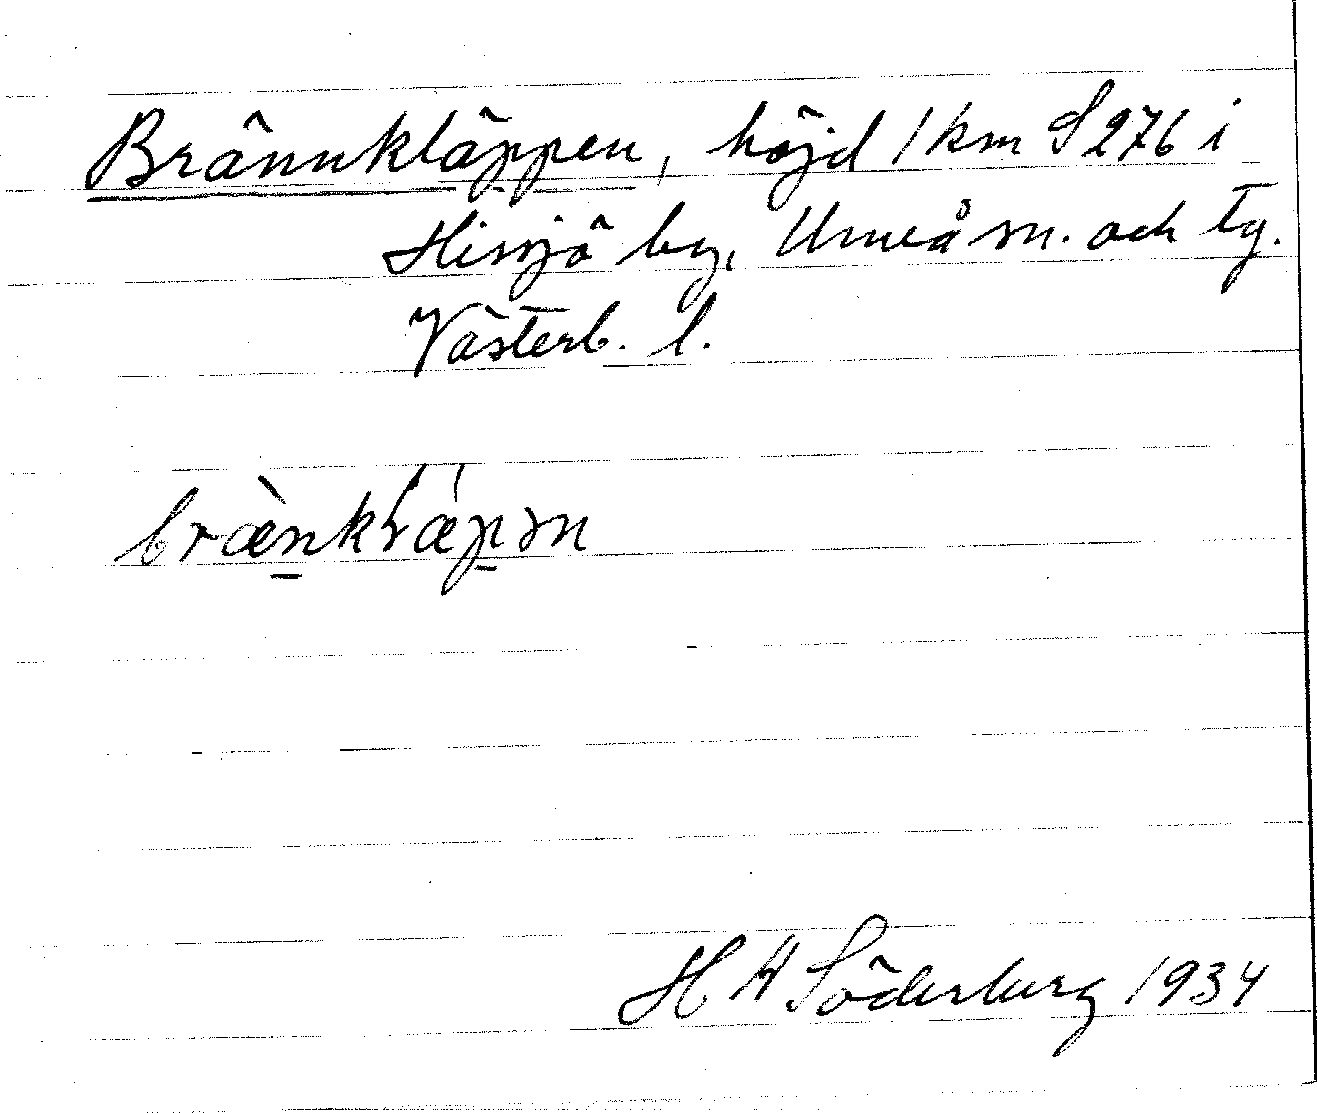 Brännkläppen, höjd 1 km S 276 i
Hissjö by, Umeå sn. och tg.
Västerb. l.
H W Söderberg 1934